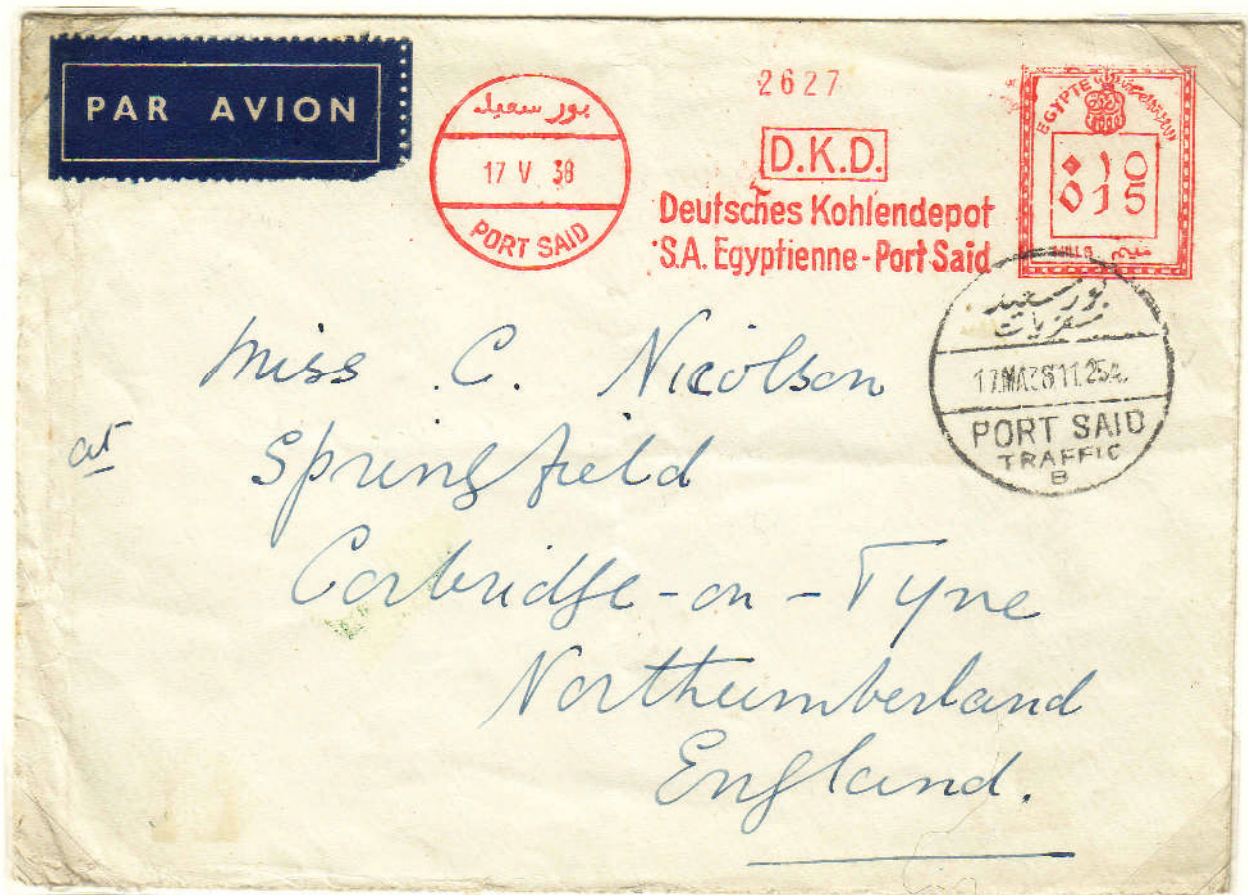 PAR AVION
بور سعيد
17 V 38
PORT SAID
2627
D.K.D.
Deutsches Kohlendepot
S.A. Egyptienne - Port Said
EGYPTE
٠١٥
015
MILLS
بور سعيد
سفريات
17.MA38 11.25A.
PORT SAID
TRAFFIC
B
Miss C. Nicolson
at Springfield
Corbridge-on-Tyne
Northumberland
England.